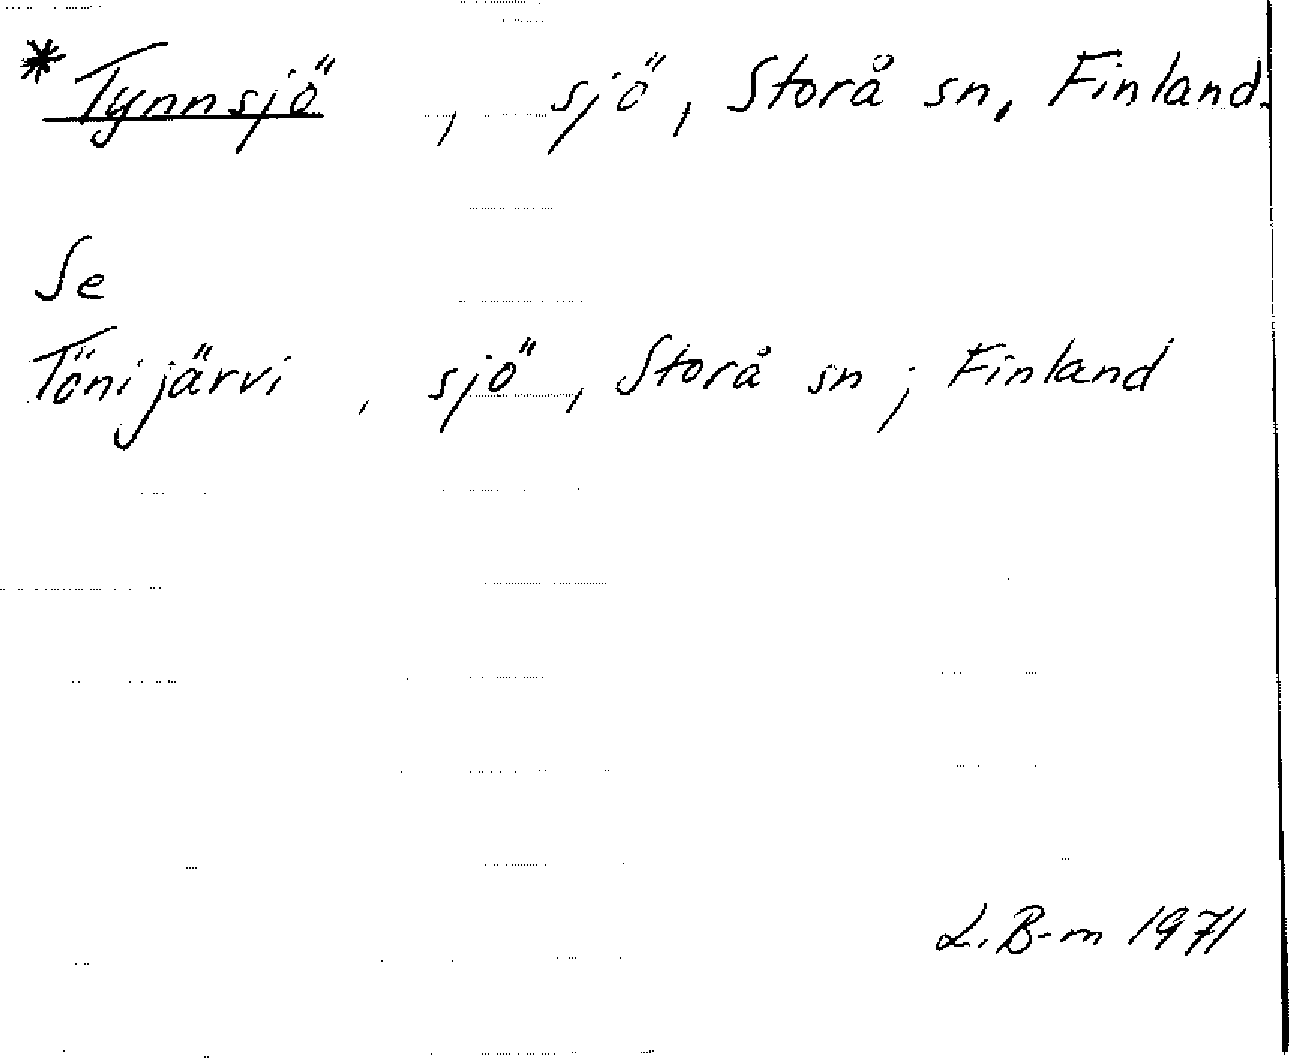 *Tynnsjö , sjö, Storå sn, Finland.
Se
Tönijärvi , sjö, Storå sn; Finland
L. B-m 1971